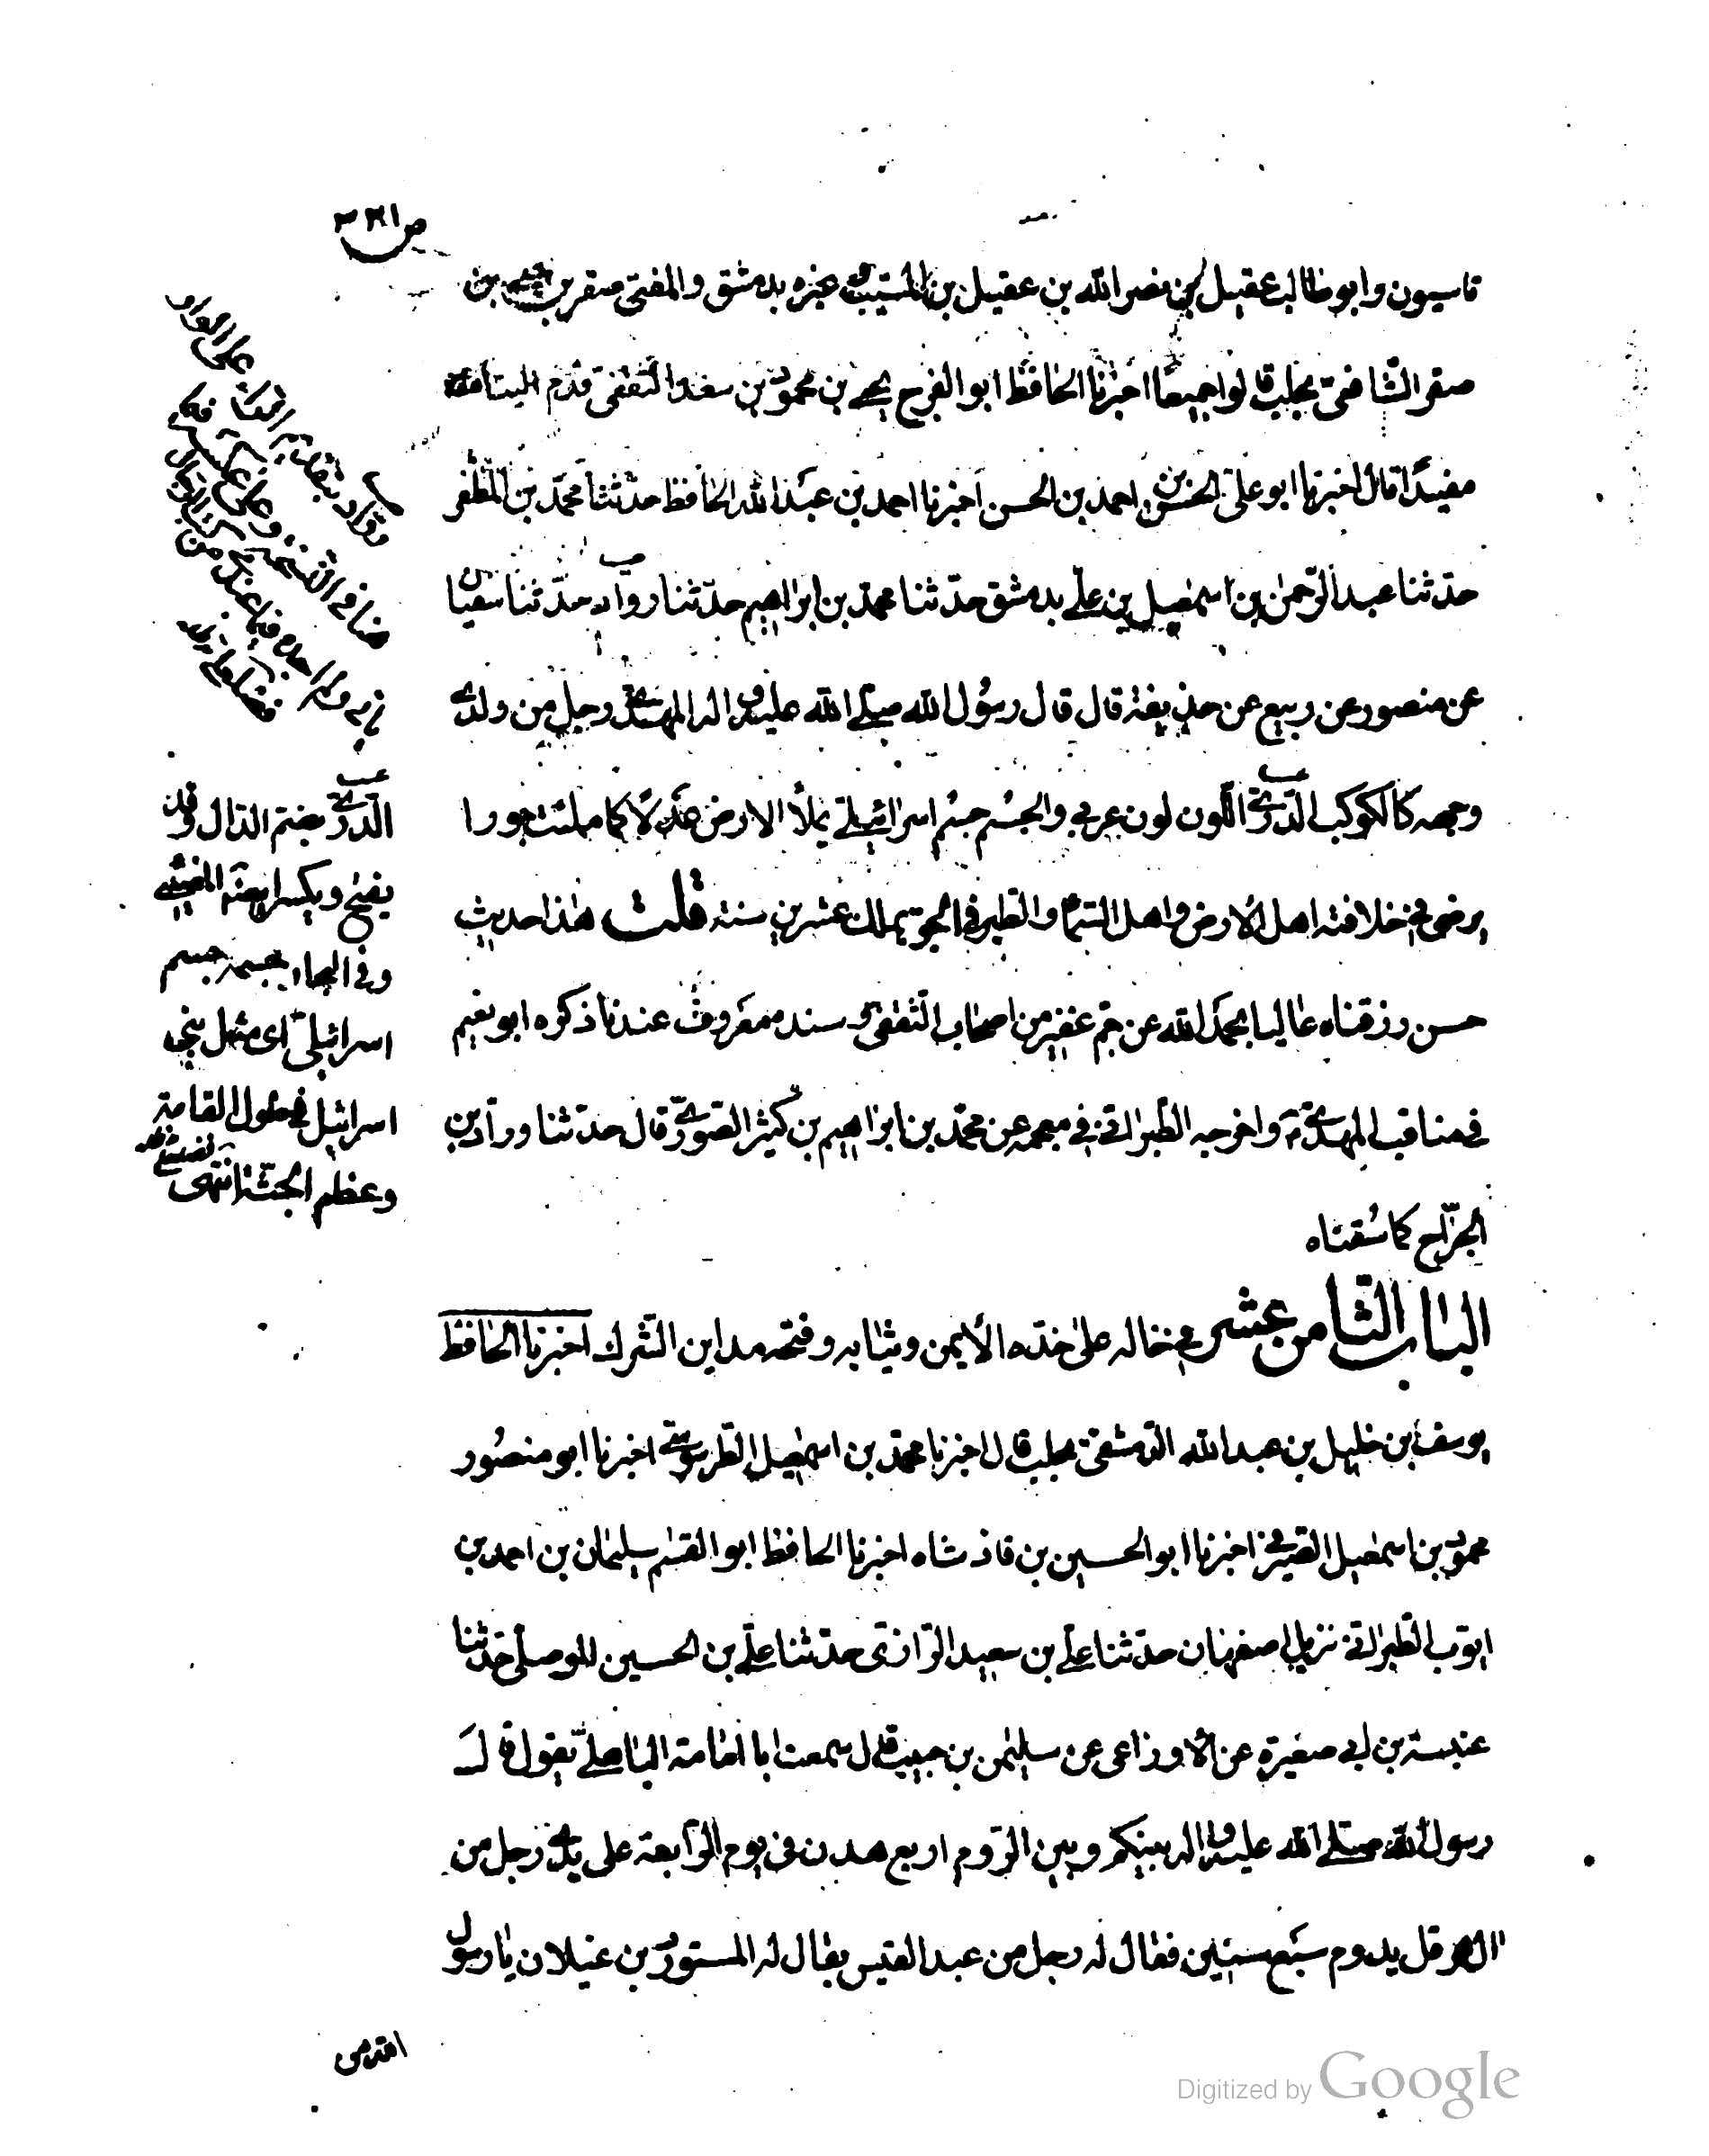 ص ٣٢١
قاسيون وابو طالب عقيل بن نصر الله بن عقيل بن المسيب وغيره بدمشق والمفتى صقر بن يحيى بن
صقر الشافعى بحلب قالوا جميعًا اخبرنا الحافظ ابو الفرج يحيى بن محمود بن سعد الثقفى قدم الينا
مفيدًا قال اخبرنا ابو على الحسن بن احمد بن الحسن اخبرنا احمد بن عبد الله الحافظ حدثنا محمد بن المظفر
حدثنا عبد الرحمن بن اسمعيل بن على بدمشق حدثنا محمد بن ابراهيم حدثنا رواد حدثنا سفيان
عن منصور عن ربيع عن حذيفة قال قال رسول الله صلى الله عليه واله المهدى رجل من ولدى
وجهه كالكوكب الدرى اللون لون عربى والجسم جسم اسرائيلى يملأ الارض عدلا كما ملئت جورا
يرضى فى خلافته اهل الارض واهل السماء والطير فى الجو يملك عشرين سنة قلت هذا حديث
حسن رزقناه عاليا بحمد الله عن جم غفير من اصحاب الثقفى وسنده معروف عندنا ذكره ابو نعيم
فى مناقب المهدى واخرجه الطبرانى فى معجمه عن محمد بن ابراهيم بن كثير الصورى قال حدثنا ورادبن
الجراح كما سقناه
الباب الثامن عشر فى خاله على خده الأيمن وثيابه وفتحه مداين الشرك اخبرنا الحافظ
يوسف بن خليل بن عبد الله الدمشقى بحلب قال اخبرنا محمد بن اسمعيل الطرسوسى اخبرنا ابو منصور
محمود بن اسمعيل الصيرفى اخبرنا ابو الحسين بن فاذشاه اخبرنا الحافظ ابو القسم سليمان بن احمد بن
ايوب الطبرانى نزيل اصفهان حدثنا على بن سعيد الرازى حدثنا على بن الحسين الموصلى حدثنا
عنبسة بن ابى صغيرة عن الاوزاعى عن سليمن بن حبيب قال سمعت ابا امامة الباهلى يقول قال
رسول الله صلى الله عليه واله بينكم وبين الروم اربع هدن فى يوم الرابعة على يدى رجل من
ال هرقل يدوم سبع سنين فقال له رجل من عبد القيس يقال له المستورد بن غيلان يا رسول
الدرى بضم الدال وقد
يفتح ويكسر ايضا المضيئى
وفى الهاء بجسمه جسم
اسرائيلى اى مثل بنى
اسرائيل فى طول القامة
وعظم الجثة انتهى
Digitized by Google